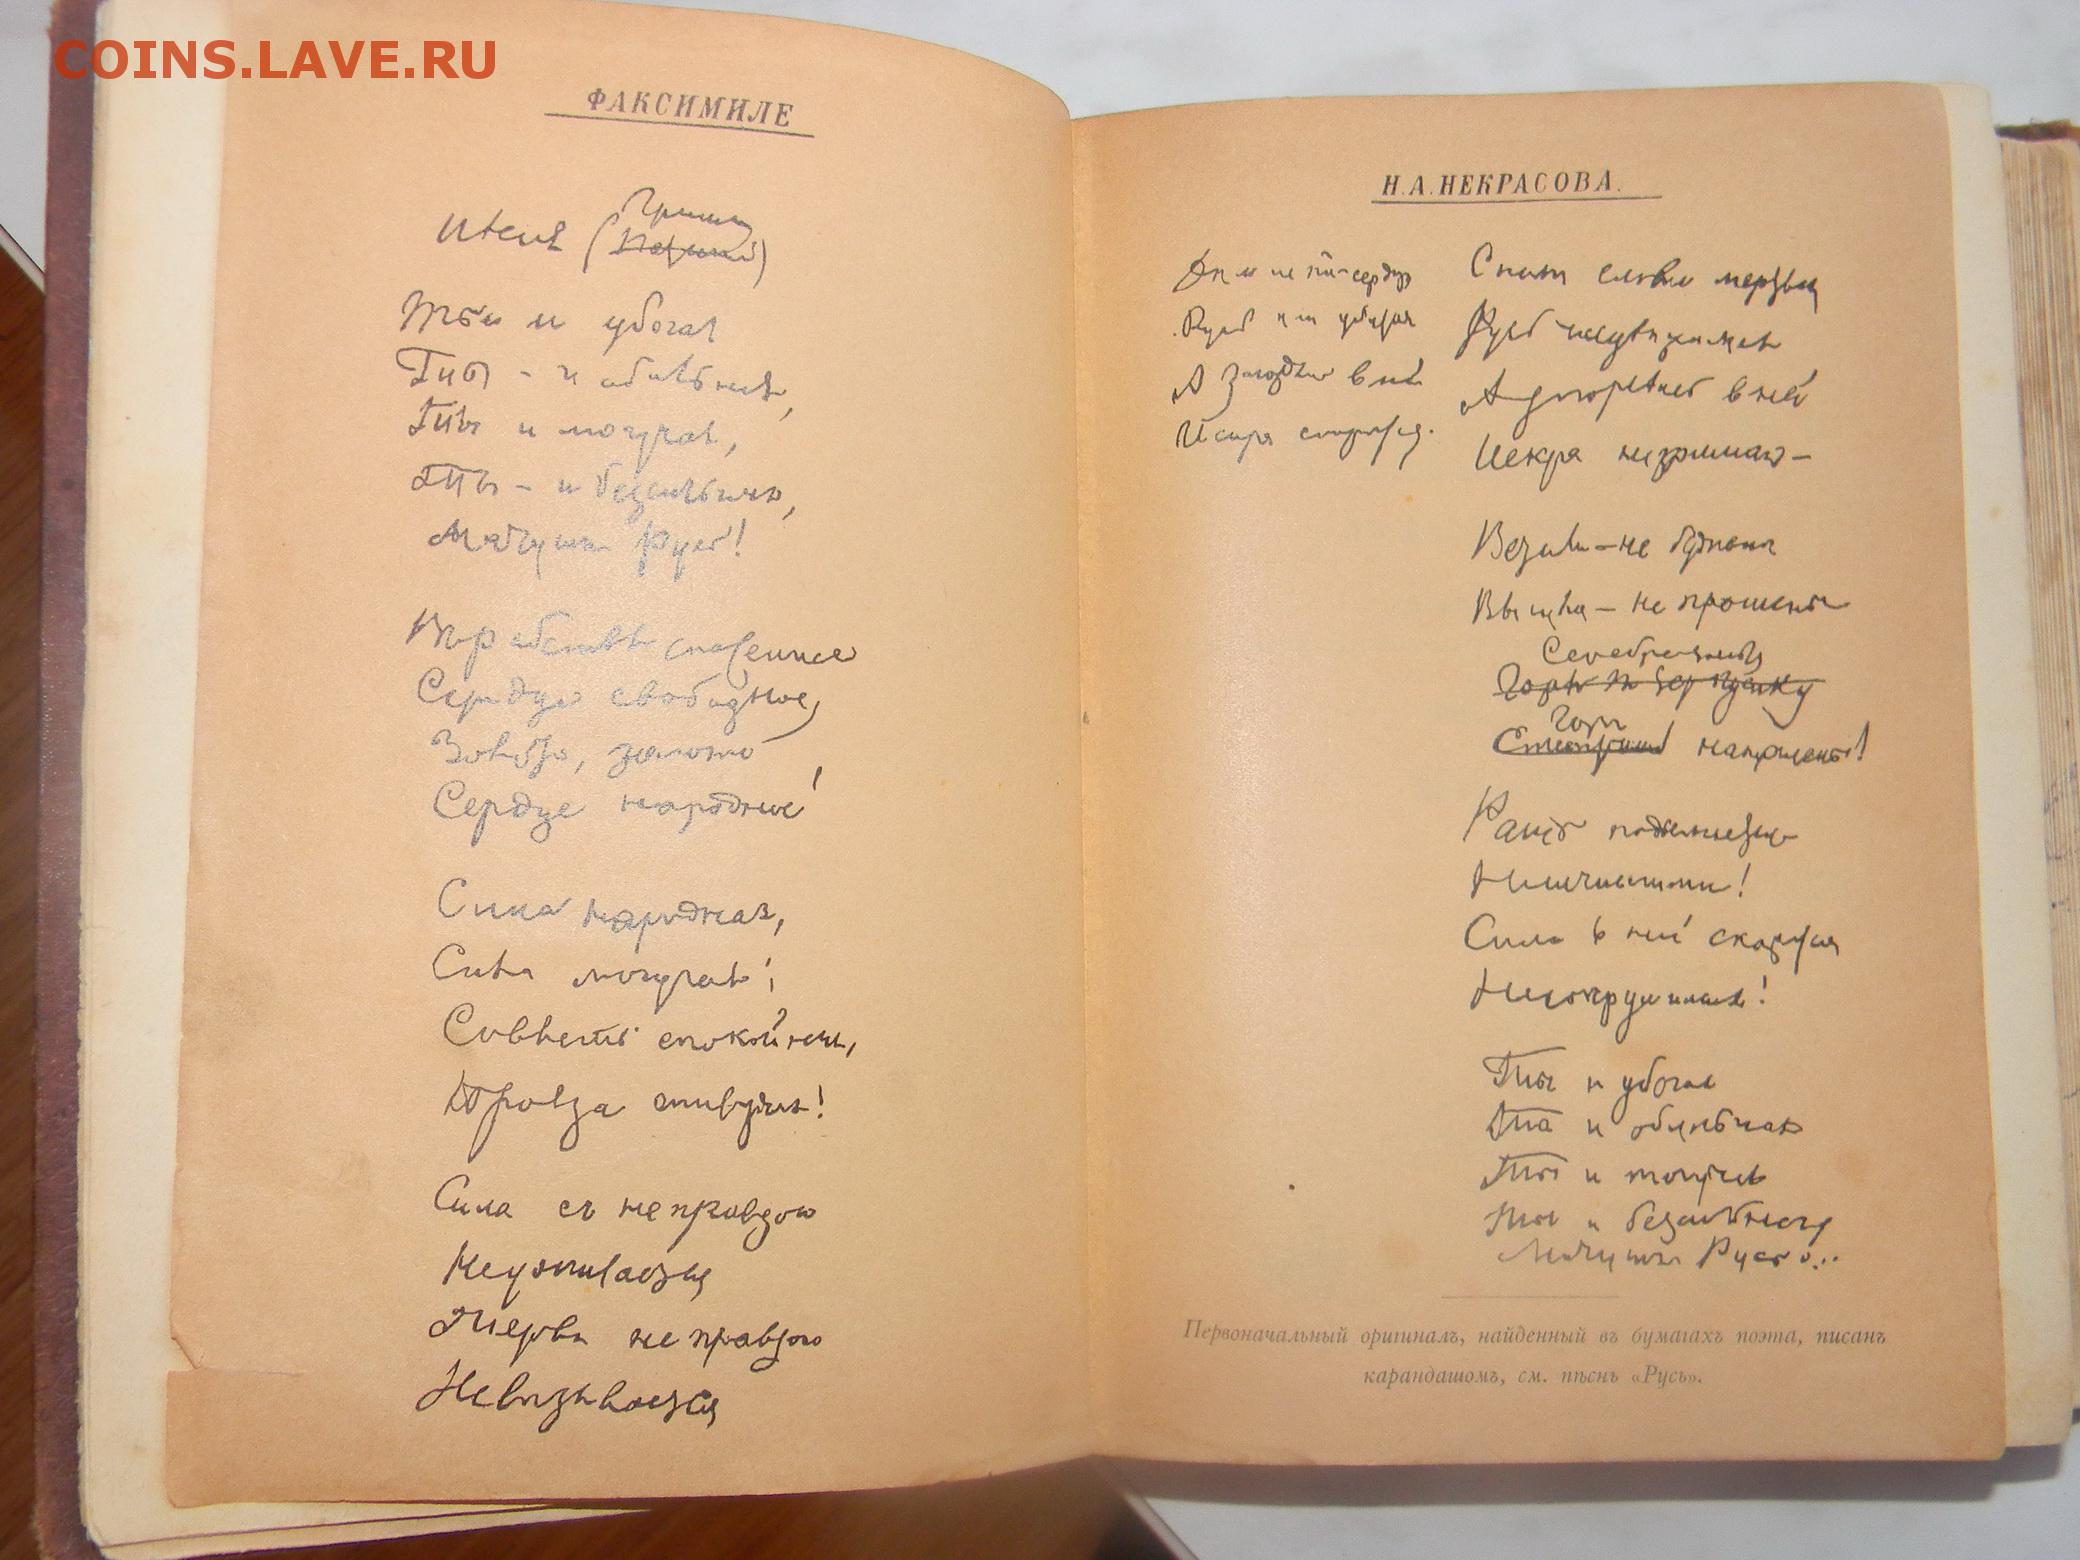 COINS.LAVE.RU
ФАКСИМИЛЕ
Пѣсня (Гриши)
Ты и убогая
Ты - и обильная,
Ты и могучая,
Ты - и безсильная,
Матушка Русь!
Въ рабствѣ спасенное
Сердце свободное,
Золото, золото
Сердце народное!
Сила народная,
Сила могучая!
Совѣсть спокойная,
Правда живучая!
Сила съ неправдою
Неуживается
Жертва неправдою
Невызывается
Н.А.НЕКРАСОВА.
Русь
А въ ней
Искра
Русь недвижимая
А въ ней
Искра незримая -
Встали - не бужены
Вышли - не прошены
Горы
нарошены!
Рать подымается
Неисчислимая!
Сила в ней скажется
Несокрушимая!
Ты и убогая
Ты и обильная
Ты и
Ты и безсильная
Матушка Русь!...
Первоначальный оригиналъ, найденный въ бумагахъ поэта, писанъ
карандашомъ, см. пѣснь «Русь».